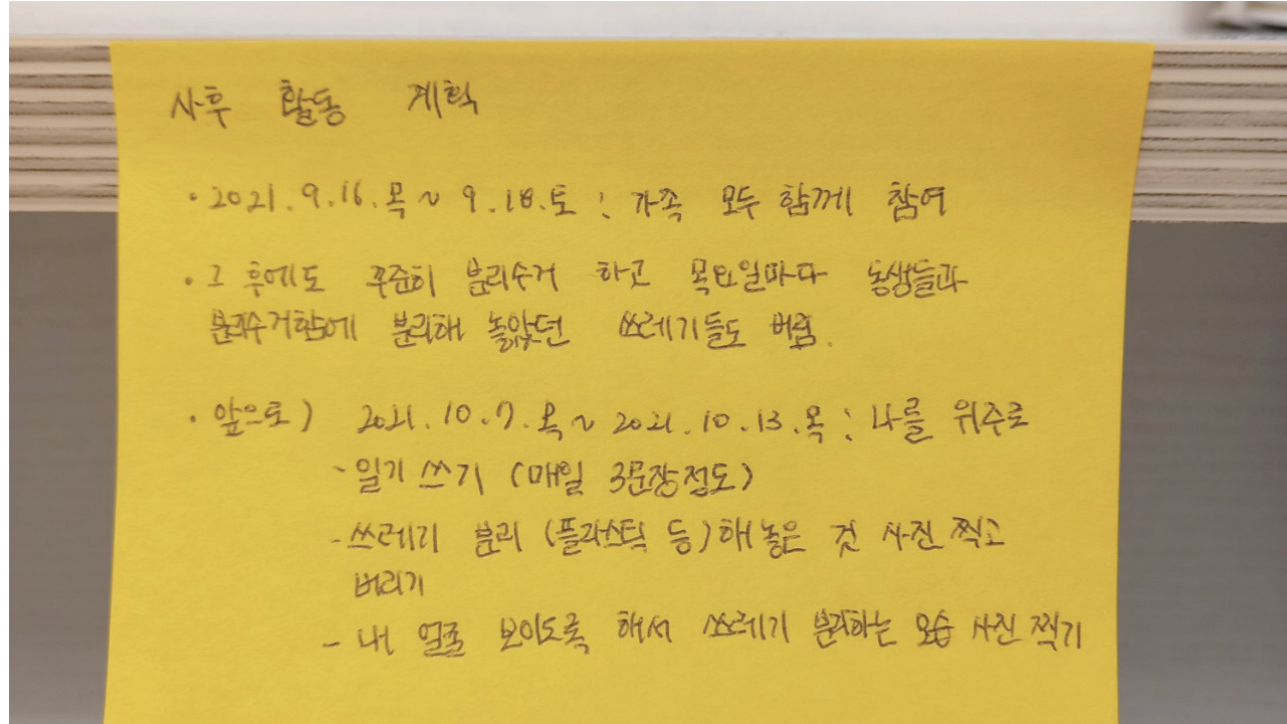 사후 활동 계획
· 2021. 9. 16. 목 ~ 9. 18. 토 : 가족 모두 함께 참여
· 그 후에도 꾸준히 분리수거 하고 목요일마다 동생들과
분리수거함에 분리해 놓았던 쓰레기들도 버림.
· 앞으로) 2021. 10. 7. 목 ~ 2021. 10. 13. 목 : 나를 위주로
- 일기 쓰기 (매일 3문장정도)
- 쓰레기 분리 (플라스틱 등) 해 놓은 것 사진 찍고
버리기
- 내 얼굴 보이도록 해서 쓰레기 분리하는 모습 사진 찍기